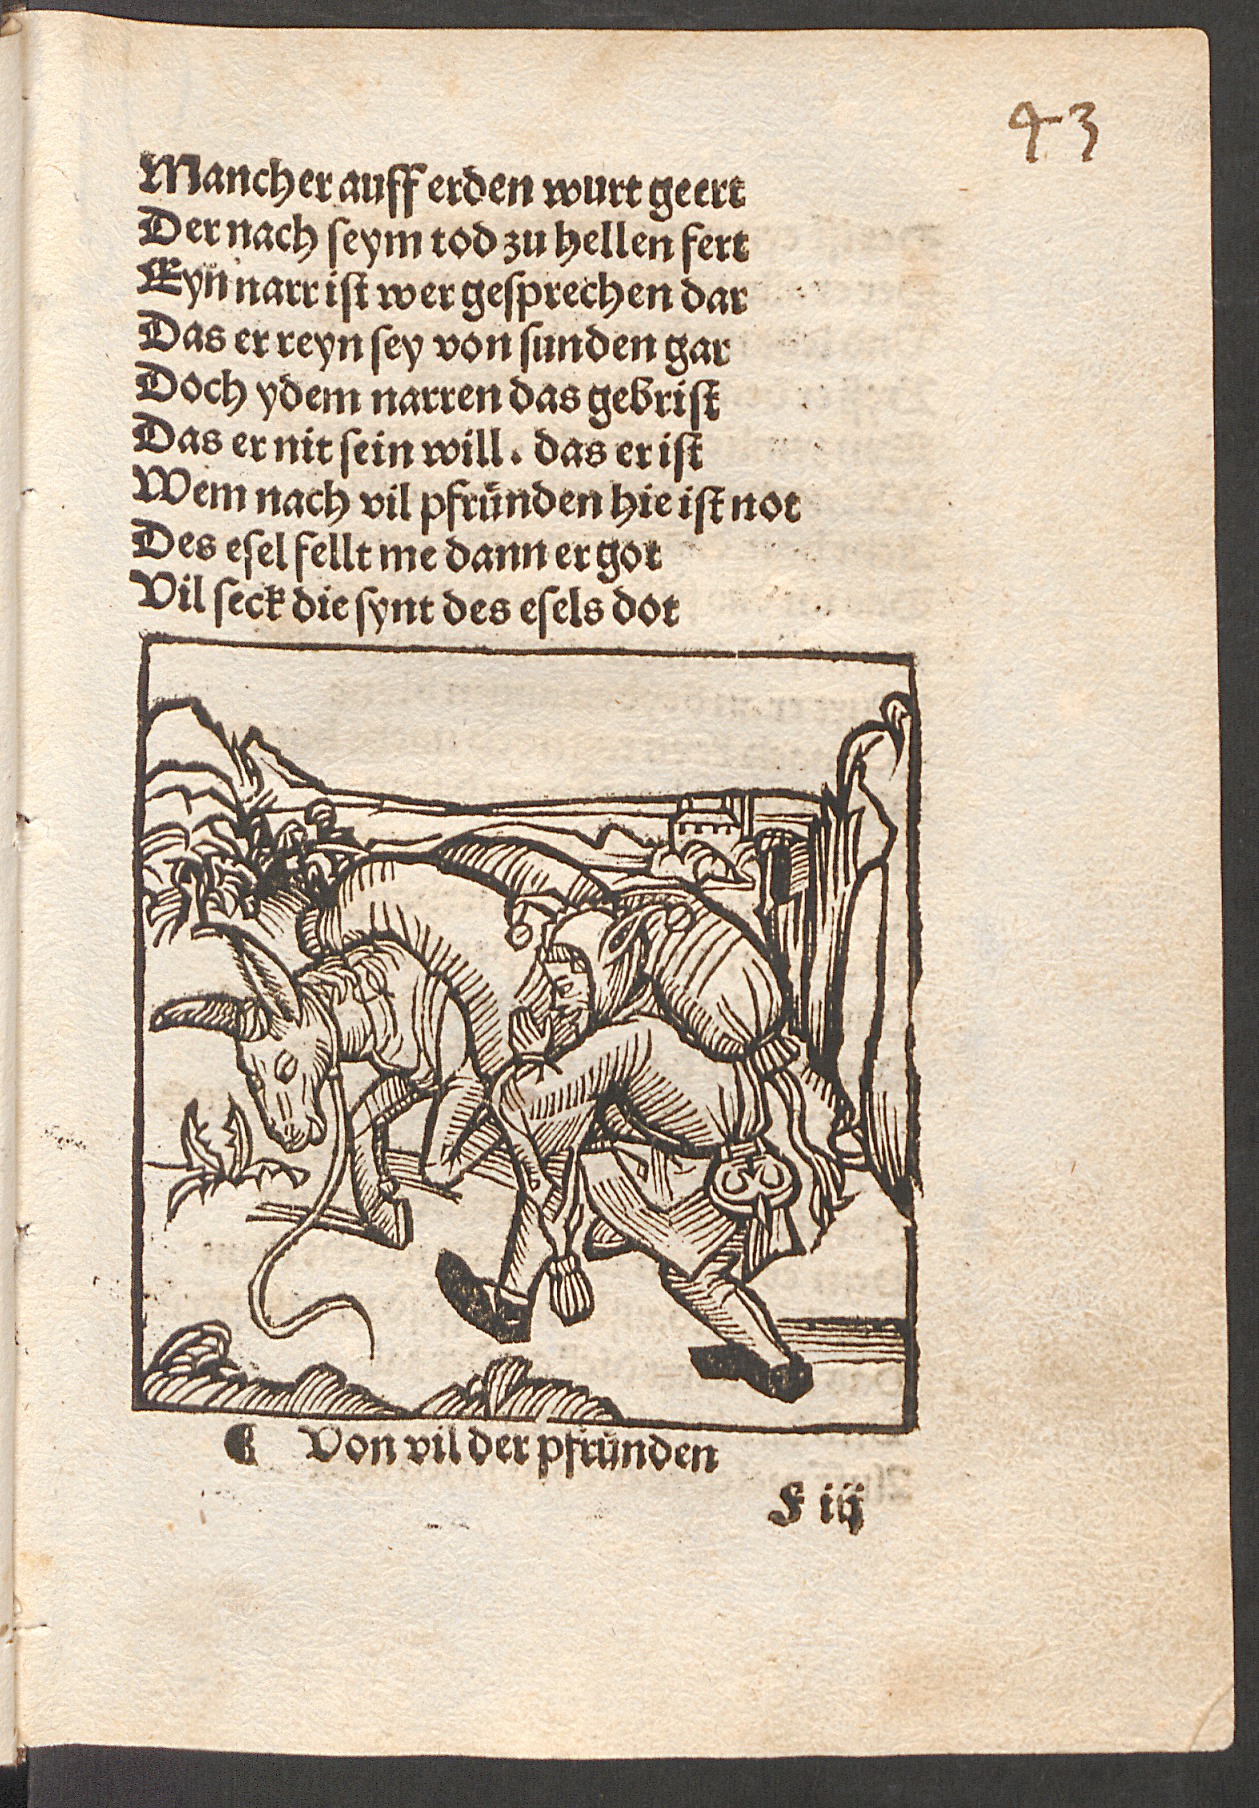 43
Mancher auff erden wurt geert
Der nach ſeym tod zu hellen fert
Eyn narr iſt wer geſprechen dar
Das er reyn ſey von ſunden gar
Doch ydem narren das gebriſt
Das er nit ſein will. das er iſt
Wem nach vil pfründen hie iſt not
Des eſel fellt me dann er got
Vil ſeck die ſynt des eſels dot
¶ Von vil der pfründen
F iij